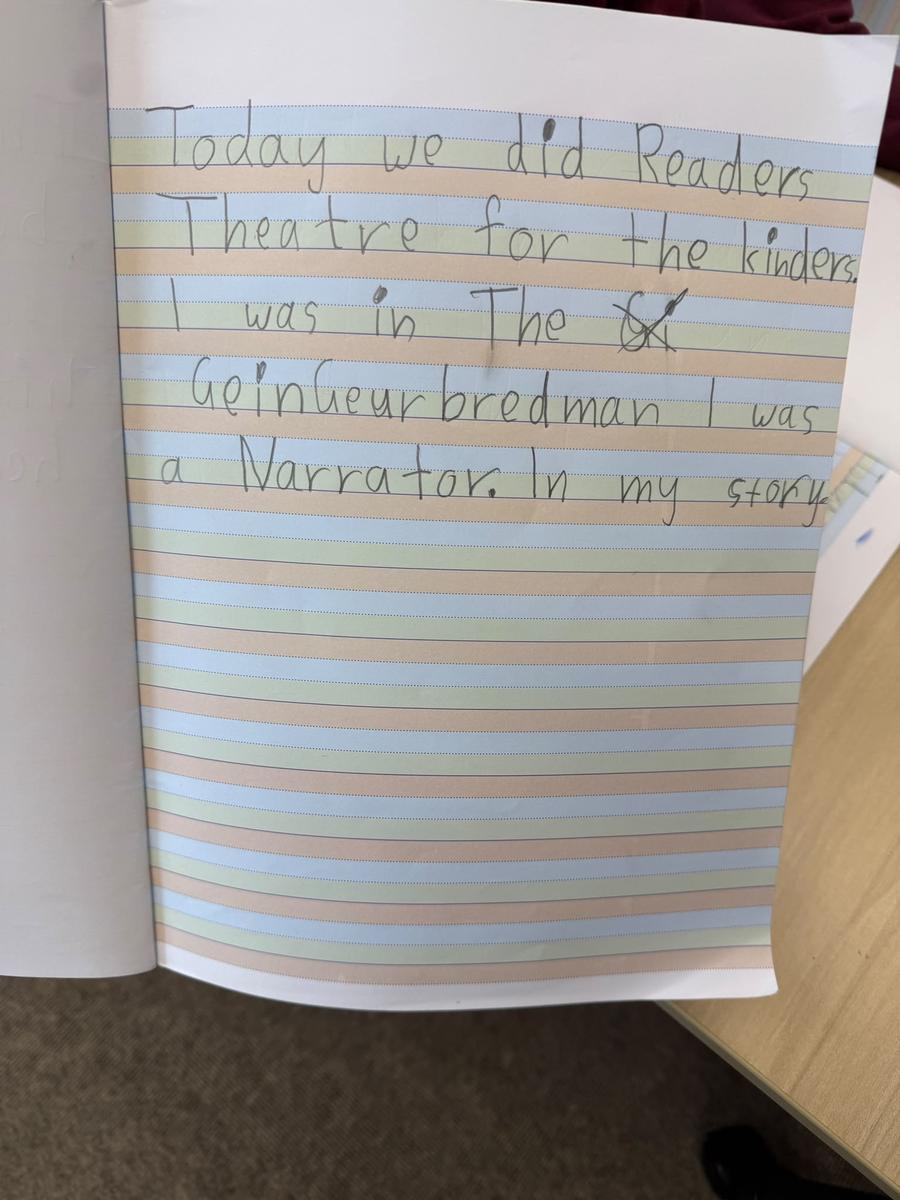 Today we did Readers
Theatre for the kinders.
I was in The
GeinGeurbredman I was
a Narrator. In my story.